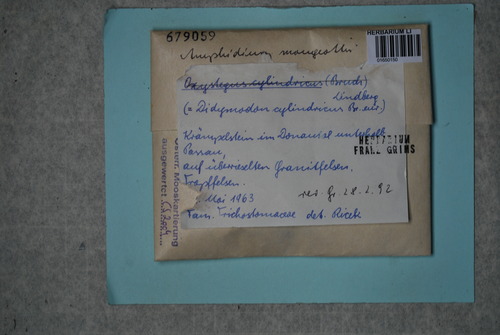 679059
HERBARIUM LI
Amphidium mougeotii
Oxystegus cylindricus (Bruch)
Lindberg
(= Didymodon cylindricus Br. eur.)
Krämpelstein im Donautal unterhalb
Passau,
auf überrieselten Granitfelsen,
Tropffelsen.
HERBARIUM
FRANZ GRIMS
Mai 1963
rev. Gr. 28.2.92
Fam. Trichostomaceae det. Ricek
Österr. Mooskartierung
ausgewertet